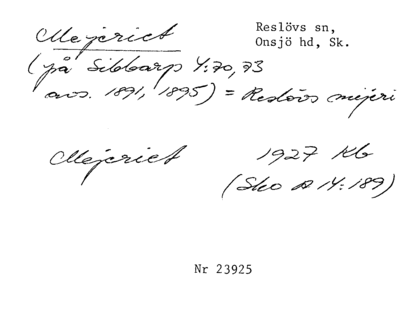 Mejeriet
Reslövs sn,
Onsjö hd, Sk.
(på Sibbarp 4:70,73
avs. 1891, 1895) = Reslövs mejeri
Mejeriet 1927 Kb
(Sko A 14:189)
Nr 23925